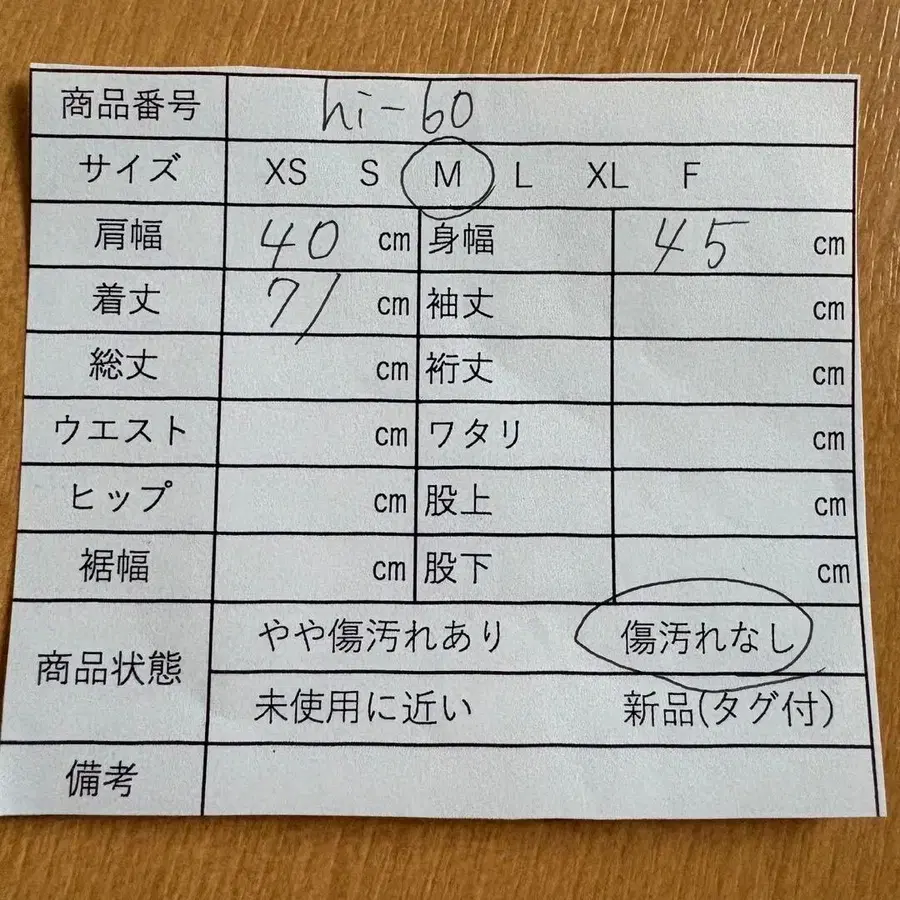 商品番号 hi-60
サイズ XS S M L XL F
肩幅 40 cm 身幅 45 cm
着丈 71 cm 袖丈 cm
総丈 cm 裄丈 cm
ウエスト cm ワタリ cm
ヒップ cm 股上 cm
裾幅 cm 股下 cm
商品状態 やや傷汚れあり 傷汚れなし
未使用に近い 新品(タグ付)
備考